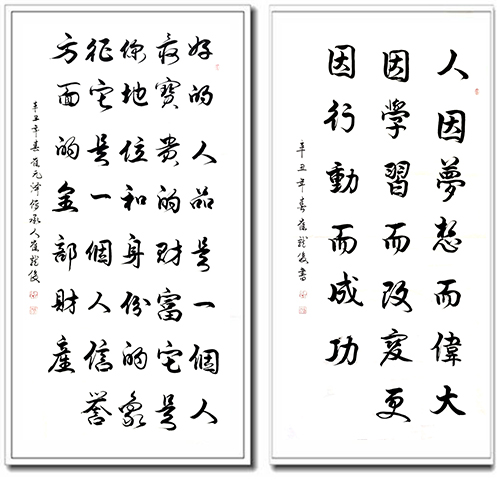 好的人品是一個人
最寶貴的財富它是
你地位和身份的象
征它是一個人信譽
方面的全部財產
辛丑年春崔元泽传承人崔龍俊
人因夢想而偉大
因學習而改變更
因行動而成功
辛丑年春崔龍俊書